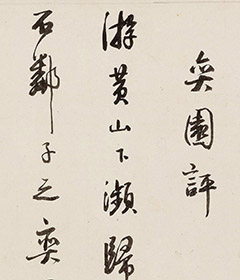 奕園評
游黄山下瀬歸
石鄰子之奕